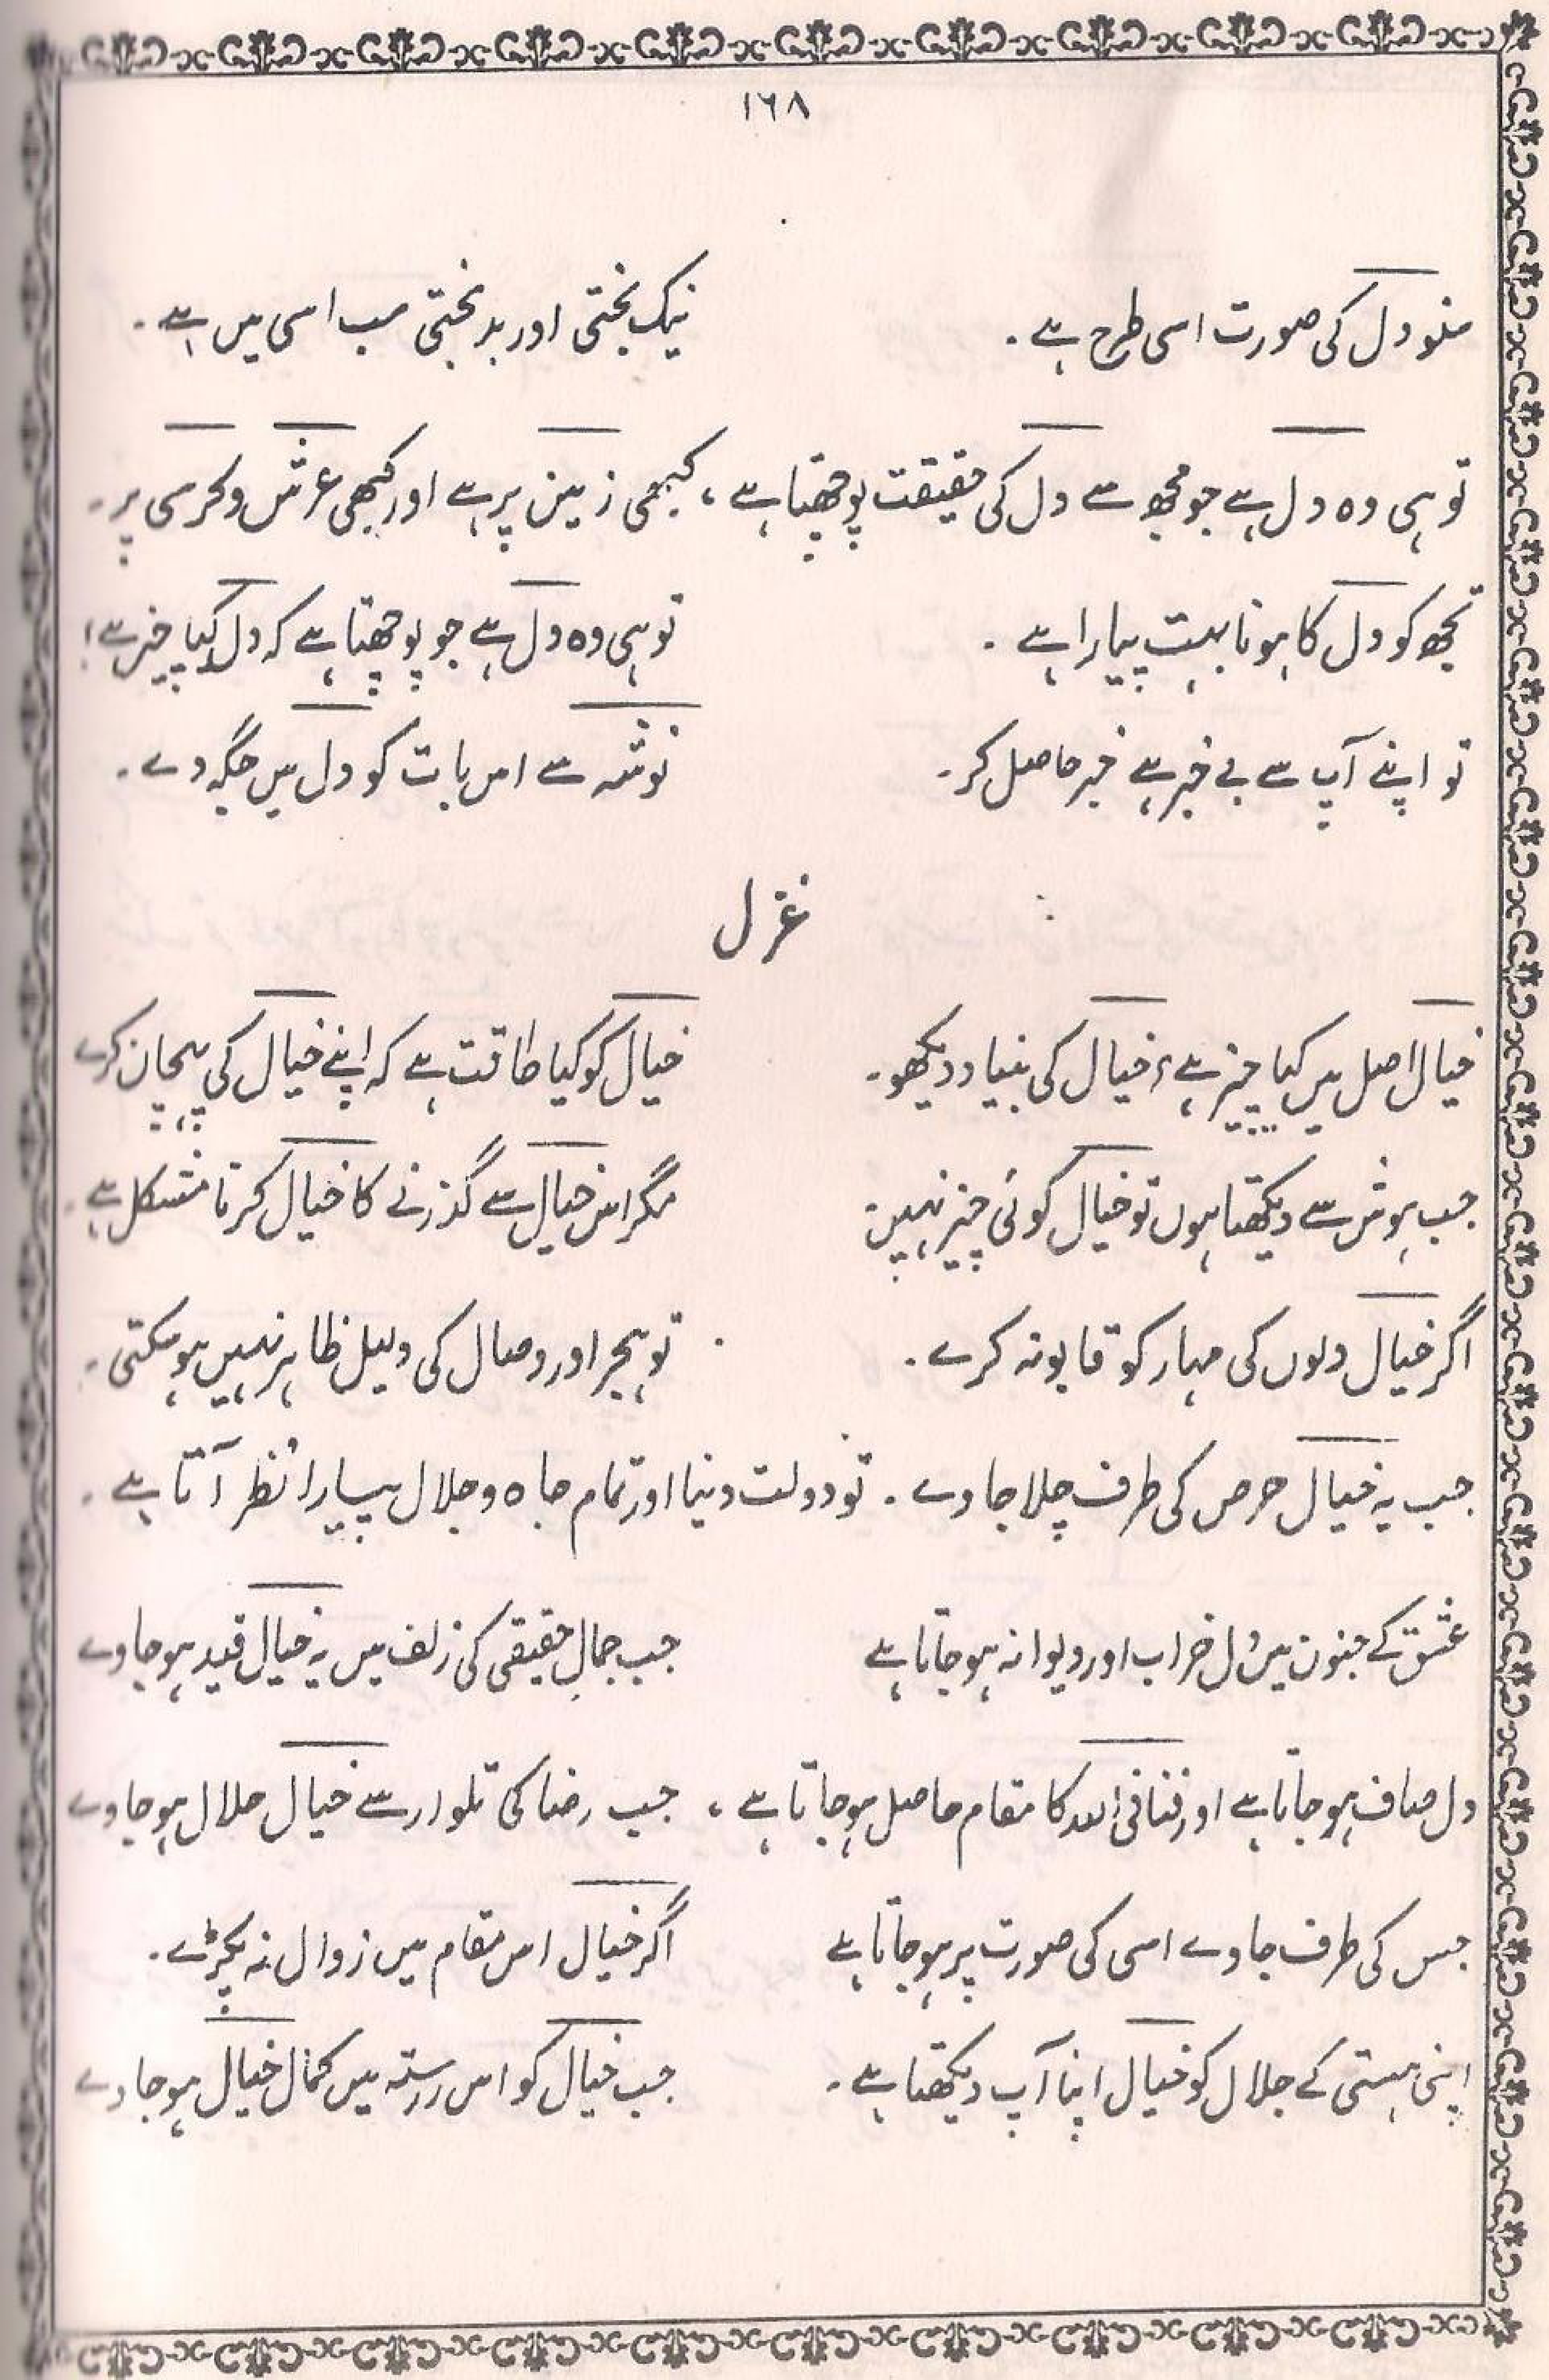 ١٦٨
سنو دل کی صورت اسی طرح ہے ۔ نیک بختی اور بد بختی سب اسی میں ہے ۔
تو ہی وہ دل ہے جو مجھ سے دل کی حقیقت پوچھتا ہے ، کبھی زمین پر ہے اور کبھی عرش و کرسی پر ۔
تجھ کو دل کا ہونا بہت پیارا ہے ۔ تو ہی وہ دل ہے جو پوچھتا ہے کہ دل کیا چیز ہے !
تو اپنے آپ سے بے خبر ہے خبر حاصل کر ۔ نوشہ سے اس بات کو دل میں جگہ دے ۔
غزل
خیال اصل میں کیا چیز ہے ، خیال کی بنیاد دیکھو ۔ خیال کو کیا طاقت ہے کہ اپنے خیال کی پہچان کرے
جب ہوش سے دیکھتا ہوں تو خیال کوئی چیز نہیں ۔ مگر اس خیال سے گذرنے کا خیال کرنا مشکل ہے ۔
اگر خیال دلوں کی مہار کو قابو نہ کرے ۔ تو ہجر اور وصال کی دلیل ظاہر نہیں ہو سکتی ۔
جب یہ خیال حرص کی طرف چلا جاوے ۔ تو دولت دنیا اور تمام جاہ و جلال پیارا نظر آتا ہے ۔
عشق کے جنون میں دل خراب اور دیوانہ ہو جاتا ہے جب جمالِ حقیقی کی زلف میں یہ خیال قید ہو جاوے
دل صاف ہو جاتا ہے اور فنا فی اللہ کا مقام حاصل ہو جاتا ہے ، جب رضا کی تلوار سے خیال حلال ہو جاوے
جس کی طرف جاوے اسی کی صورت پر ہو جاتا ہے اگر خیال اس مقام میں زوال نہ پکڑے ۔
اپنی ہستی کے جلال کو خیال اپنا آپ دیکھتا ہے ۔ جب خیال کو اس رستہ میں کمال خیال ہو جاوے